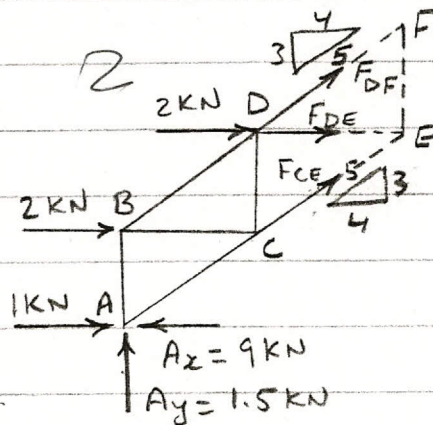 2
4
3
5
F
F_DF
2KN D F_DE
E
F_CE 5
3
4
2KN B
C
1KN A
Ax = 9KN
Ay = 1.5KN